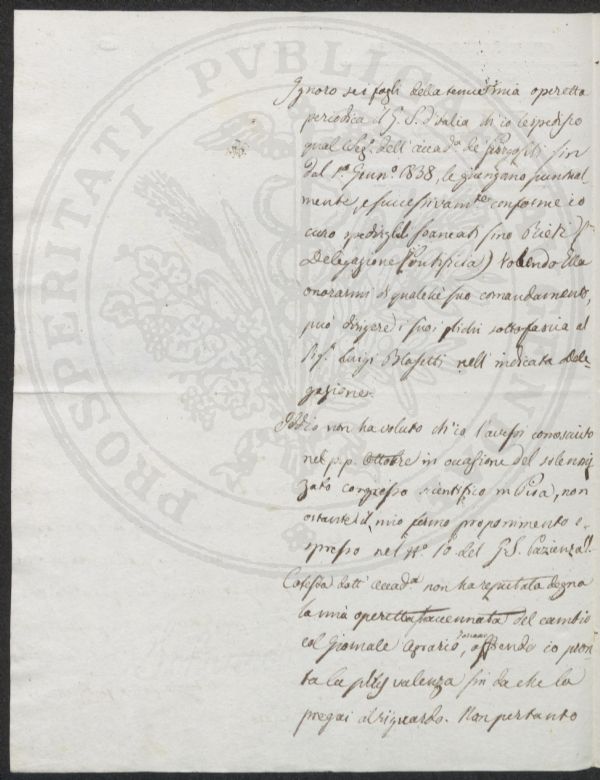 PROSPERITATI PVBLICAE
Ignoro se i fogli della tenuissima operetta
periodica Il G. S. d'Italia ch'io le spedisco
qual Seg.º dell'Accad.ª de' Georgofili fin
dal 1.º Genn.º 1838, le giungano puntual
mente, e successivam.te conforme io
curo spedirgli francati fino Rieti
Delegazione (Pontificia) Volendo Ella
onorarmi di qualche suo comandamento,
può dirigere i suoi plichi sotto fascia al
Sig.r Luigi Blasetti nell'indicata Dele-
gazione.
Iddio non ha voluto ch'io l'avessi conosciuto
nel p.p. Ottobre in occasione del solenniz
zato congresso scientifico in Pisa, non
ostante il mio fermo proponimento e-
spresso nel Nº 10 del G. S. Pazienza!!
Cotesta dott' Accad.ª non ha reputata degna
la mia operetta accennata del cambio
col Giornale Agrario, offrendo io pron
ta la plus valenza fin da che la
pregai al riguardo. Non pertanto